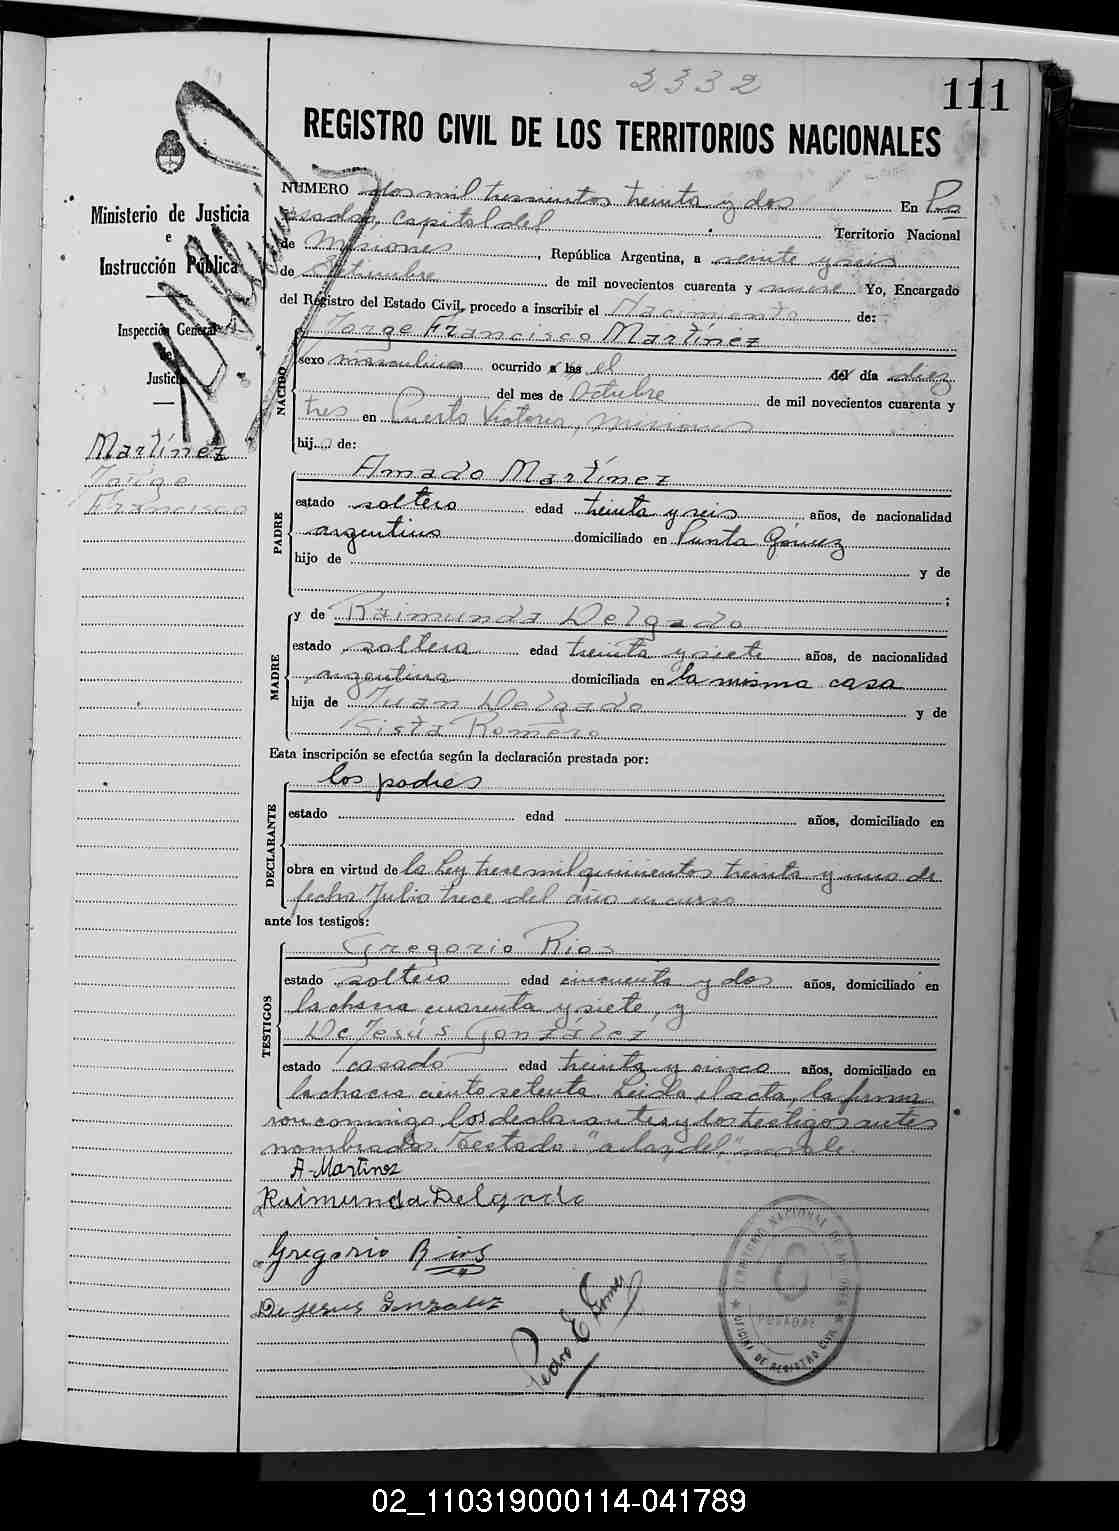 2332
111
REGISTRO CIVIL DE LOS TERRITORIOS NACIONALES
Ministerio de Justicia
e
Instrucción Pública
Inspección General
de
Justicia
Martínez
Jorge
Francisco
NUMERO dos mil trescientos treinta y dos En Po
sadas, capital del Territorio Nacional
de Misiones, República Argentina, a veinte y seis
de Setiembre de mil novecientos cuarenta y nueve Yo, Encargado
del Registro del Estado Civil, procedo a inscribir el Nacimiento de:
NACIDO
Jorge Francisco Martínez
sexo masculino ocurrido a las el del día diez
del mes de Octubre de mil novecientos cuarenta y
tres en Puerto Victoria, Misiones
hij... de:
PADRE
Amado Martínez
estado soltero edad treinta y seis años, de nacionalidad
argentino domiciliado en Punta Gómez
hijo de y de
;
MADRE
y de Raimunda Delgado
estado soltera edad treinta y siete años, de nacionalidad
argentina domiciliada en la misma casa
hija de Juan Delgado y de
Sista Romero
Esta inscripción se efectúa según la declaración prestada por:
DECLARANTE
los padres
estado edad años, domiciliado en
obra en virtud de la Ley trece mil quinientos treinta y uno de
fecha Julio trece del año en curso
ante los testigos:
TESTIGOS
Gregorio Rios
estado soltero edad cincuenta y dos años, domiciliado en
la chacra cuarenta y siete, y
De Jesús González
estado casado edad treinta y cinco años, domiciliado en
la chacra ciento setenta. Leida el acta, la firma
ron conmigo los declarantes y los testigos antes
nombrados. Testado: "a las, del", no vale.
A. Martinez
Raimunda Delgado
Gregorio Rios
De jesus Gonzalez
Pedro E Gomez
TERRITORIO NACIONAL DE MISIONES
POSADAS
OFICINA DE REGISTRO CIVIL
02_110319000114-041789